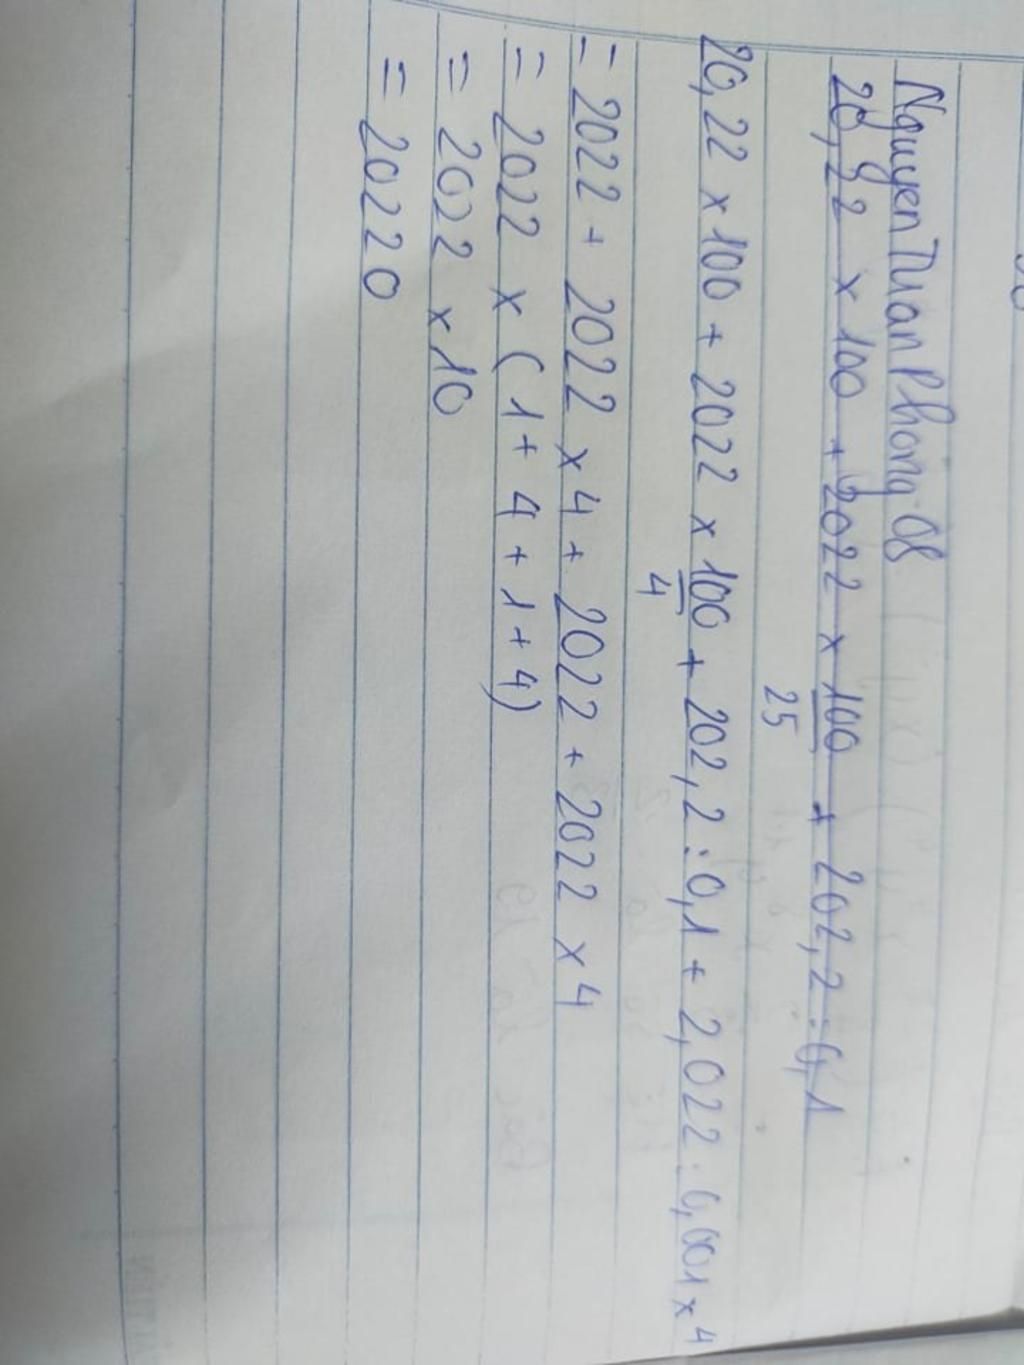 Nguyen Tuan Phong 08
20,22 x 100 + 2022 x 100 + 202,2 : 0,1
25
20,22 x 100 + 2022 x 100 + 202,2 : 0,1 + 2,022 : 0,001 x 4
4
= 2022 + 2022 x 4 + 2022 + 2022 x 4
= 2022 x ( 1 + 4 + 1 + 4)
= 2022 x 10
= 20220